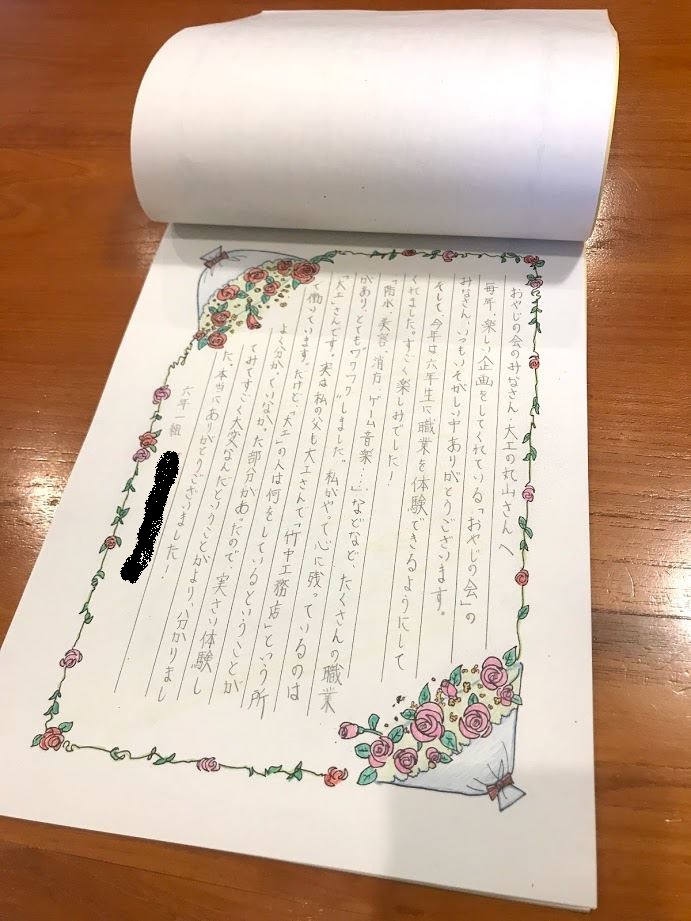 おやじの会のみなさん・大工の丸山さんへ
毎年、楽しい企画をしてくれている「おやじの会」の
みなさん、いつもいそがしい中ありがとうございます。
そして、今年は六年生に職業を体験できるようにして
くれました。すごく楽しみでした！
「防水、美容、消方、ゲーム音楽……」などなど、たくさんの職業
があり、とても"ワクワク"しました。私がやって心に残っているのは
「大工」さんです。実は私の父も大工さんで「竹中工務店」という所
で働いています。だけど、「大工」の人は何をしているということが
よく分かっていなかった部分があったので、実さい体験し
てみてすごく大変なんだということがより、分かりまし
た。本当にありがとうございました！
六年一組